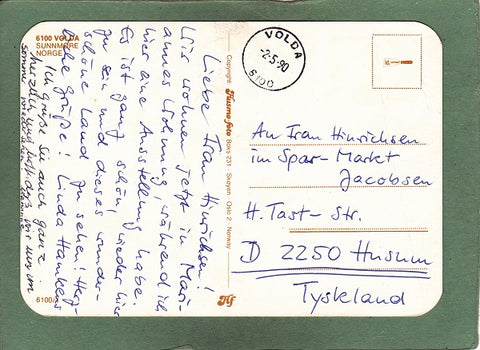 6100 VOLDA
SUNNMØRE
NORGE
Liebe Frau Hinrichsen!
Wir wohnen jetzt in Mari-
annes Wohnung, während ich
hier eine Anstellung habe.
Es ist ganz schön, wieder hier
zu sein und dieses wunder-
schöne Land zu sehen! Herz-
liche Grüße! Linda Hankens
Ich Grüße Sie auch ganz
herzlich und hoffe, dass wir uns im
Sommer wiedersehen!
6100/
Copyright Husmo-foto Boks 231 Skøyen Oslo 2 Norway
Hf
VOLDA
-2-5-90
6100
An Frau Hinrichsen
im Spar-Markt
Jacobsen
H. Tast-Str.
D 2250 Husum
Tyskland